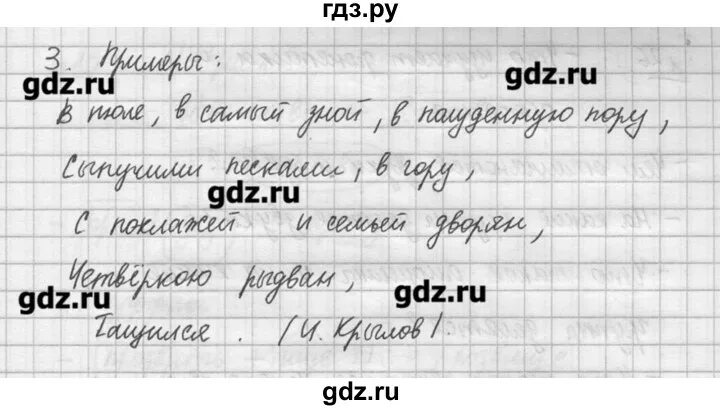 гдз.ру
3. Примеры:
gdz.ru gdz.ru
В июле, в самый зной, в полуденную пору,
Сыпучими песками, в гору,
gdz.ru
С поклажей и семьей дворян,
Четвёркою рыдван,
gdz.ru gdz.ru
Тащился. (И. Крылов).
gdz.ru